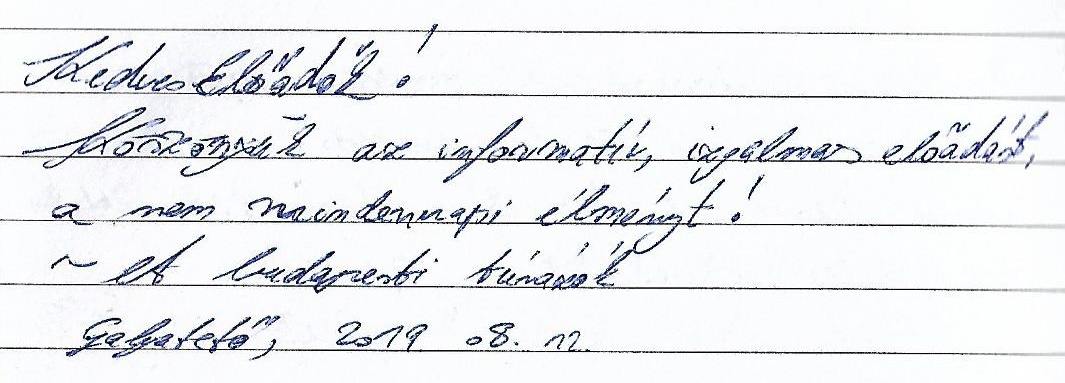 Kedves Előadók!
Köszönjük az informatív, izgalmas előadást,
a nem mindennapi élményt!
~ A budapesti túrázók
Galyatető, 2019 08. 12.